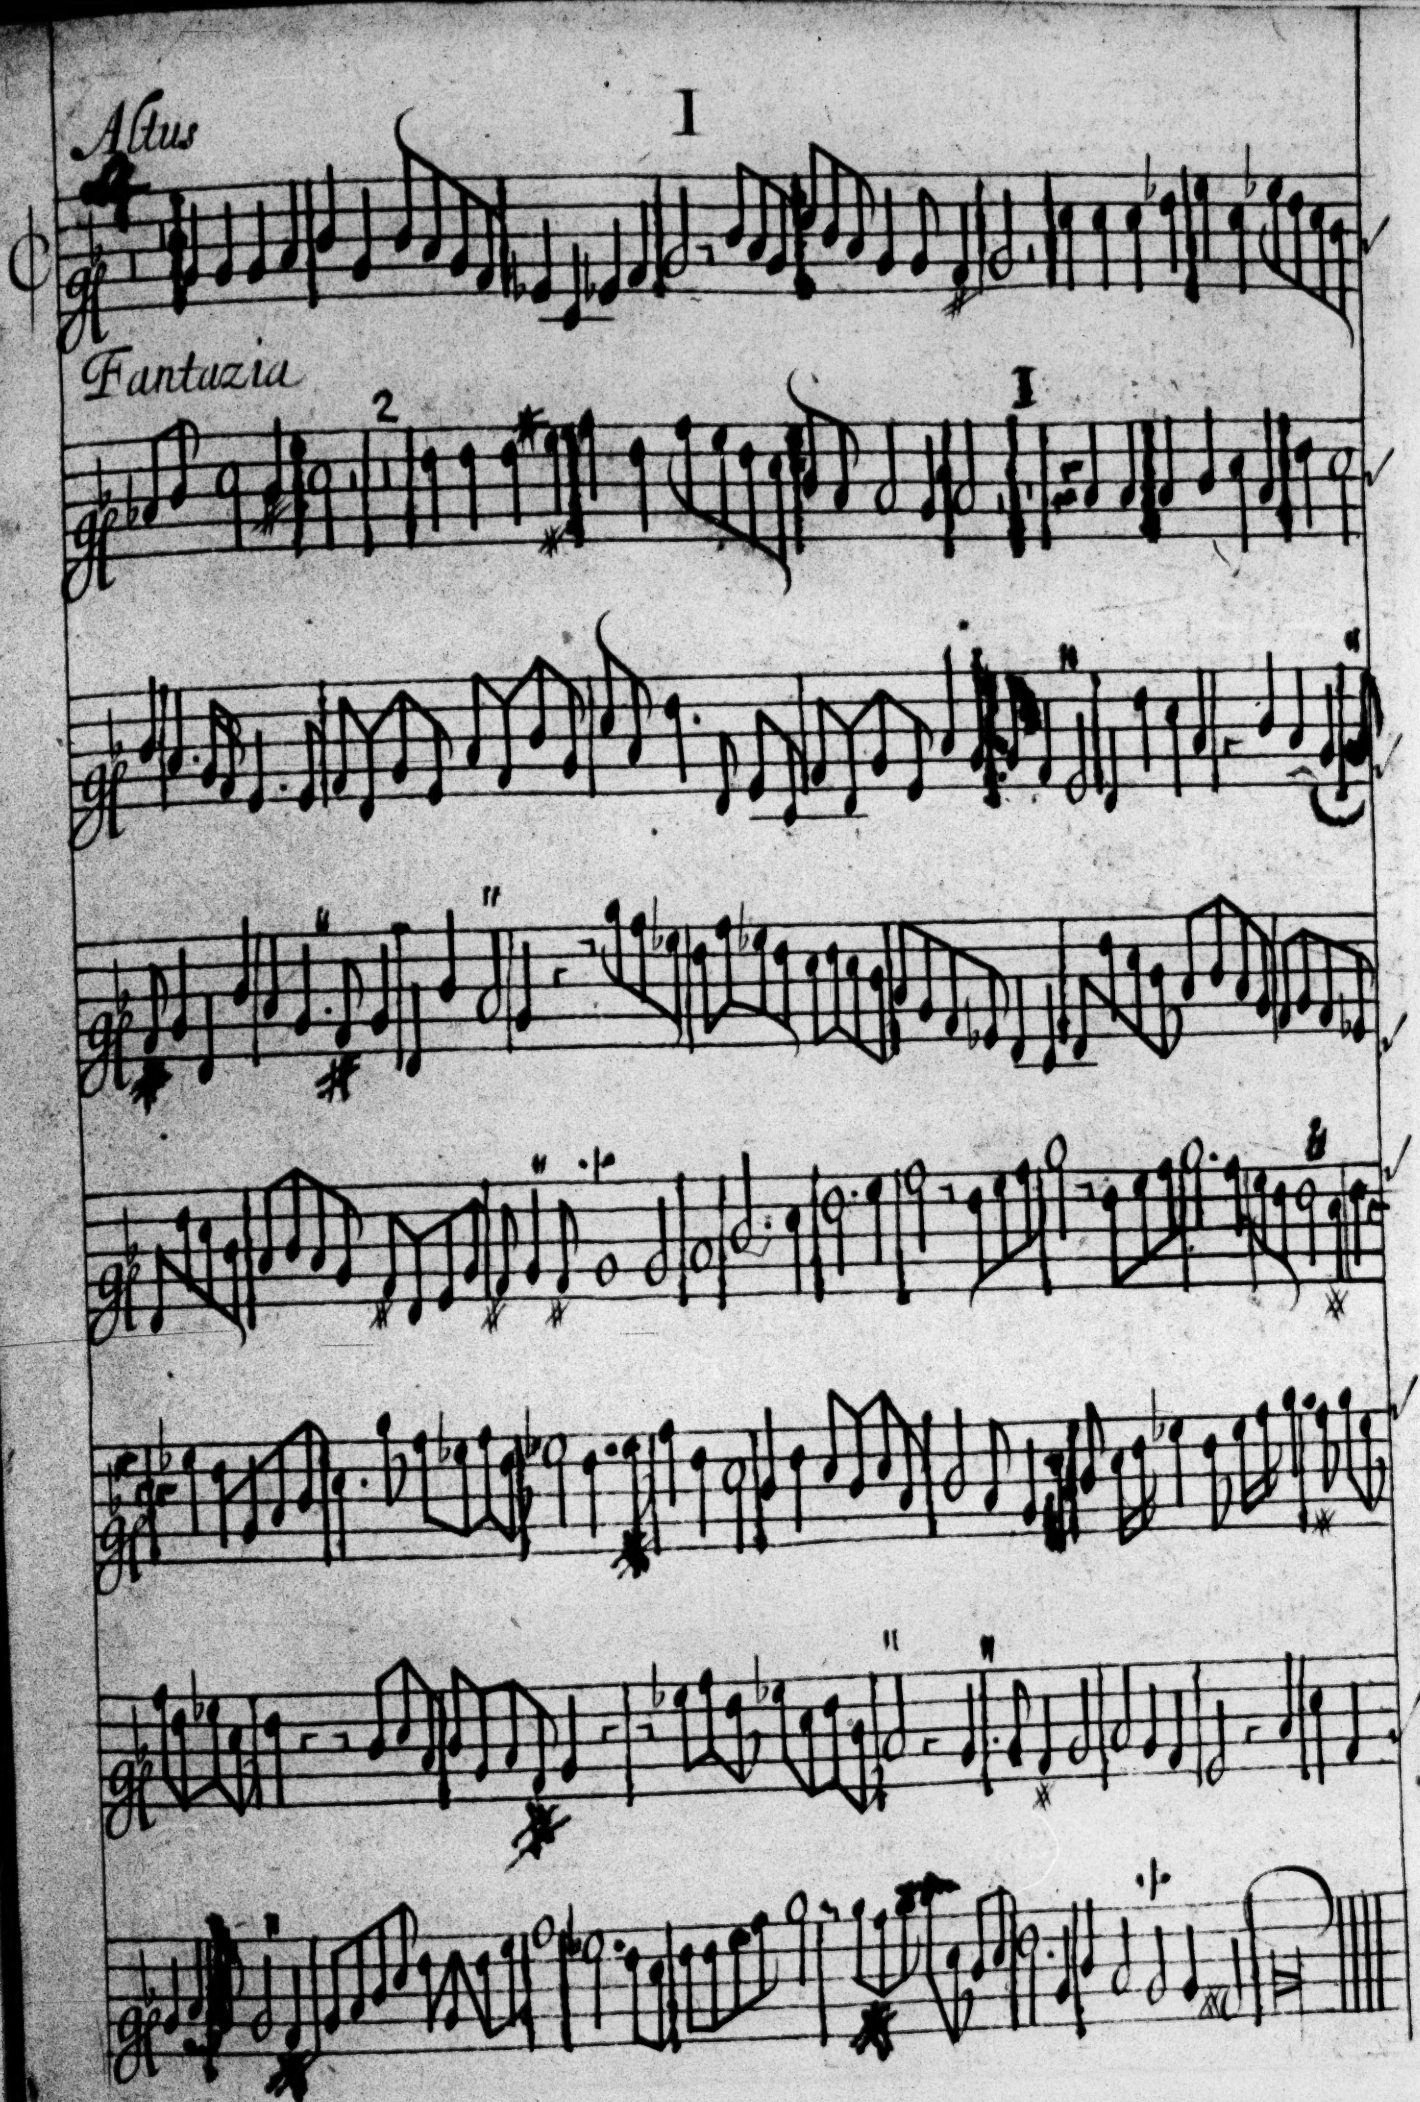 Altus
1
4
Fantazia
2
1